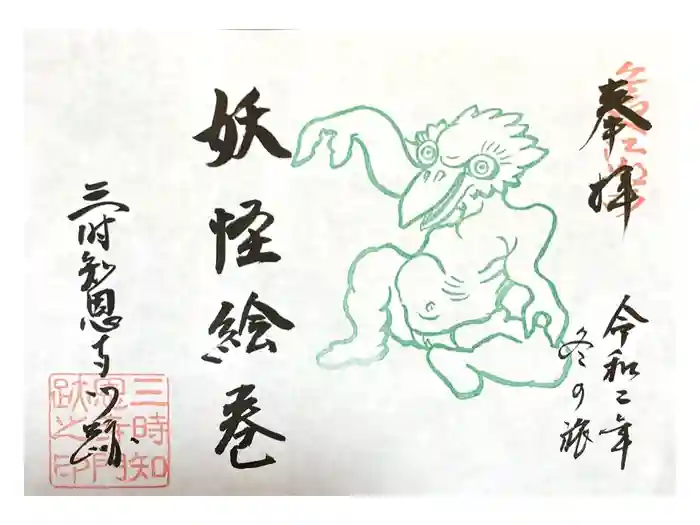 奉拝
令和二年
冬の旅
妖怪絵巻
三時知恩寺門跡
三時知
恩寺門
跡之印